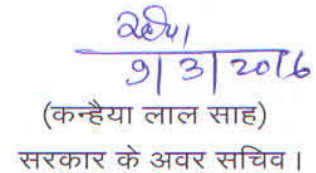 9/3/2016
(कन्हैया लाल साह)
सरकार के अवर सचिव।